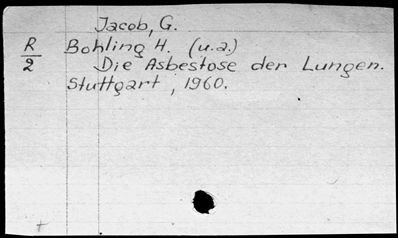 Jacob, G.
R/2 Bohling H. (u.a.)
Die Asbestose der Lungen.
Stuttgart, 1960.